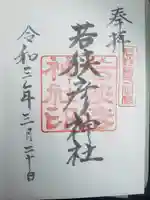 奉拝
若狭彦神社
令和三年三月二十日